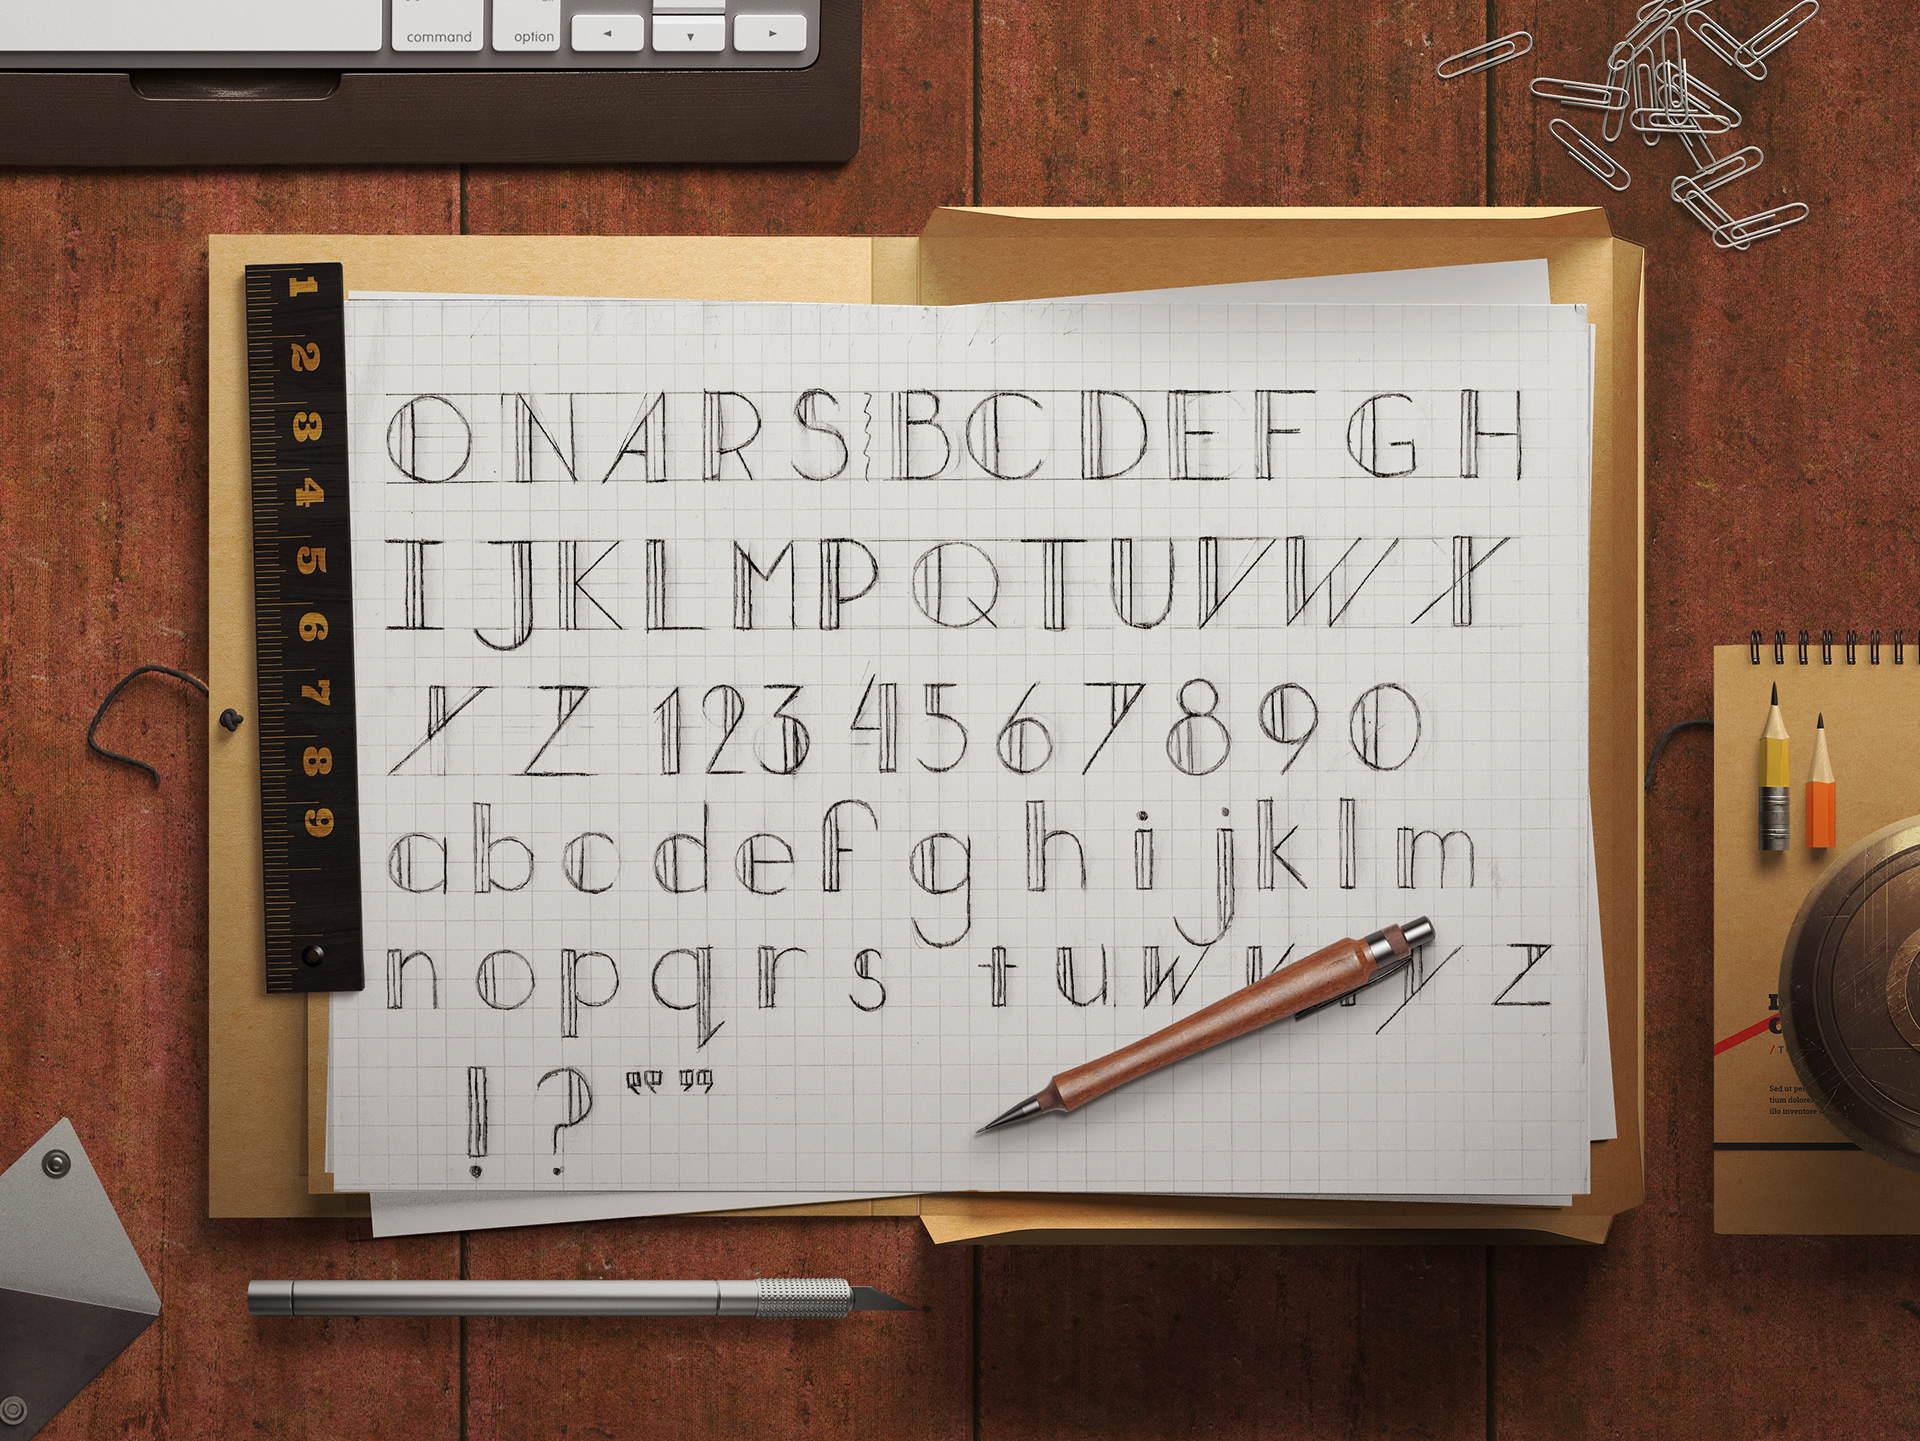 command option
1
2
3
4
5
6
7
8
9
O N A R S B C D E F G H
I J K L M P Q T U V W X
Y Z 1 2 3 4 5 6 7 8 9 0
a b c d e f g h i j k l m
n o p q r s t u w y z
! ? “ ”
Sed ut
tium
illo inventore